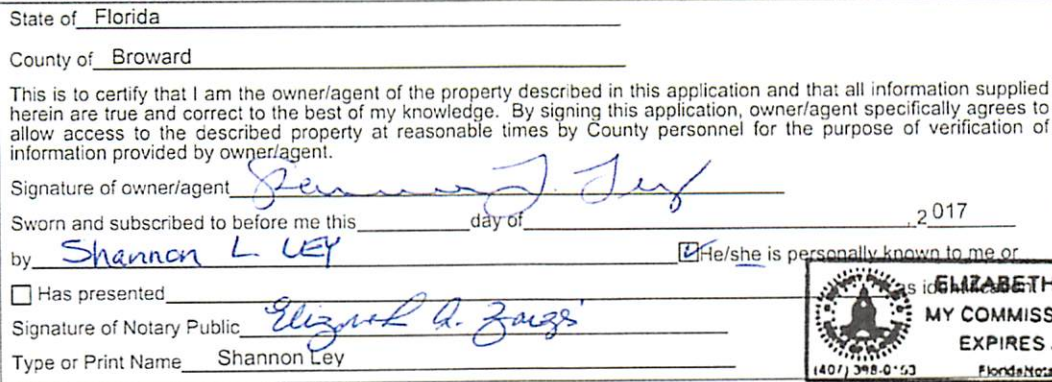 State of Florida
County of Broward
This is to certify that I am the owner/agent of the property described in this application and that all information supplied
herein are true and correct to the best of my knowledge. By signing this application, owner/agent specifically agrees to
allow access to the described property at reasonable times by County personnel for the purpose of verification of
information provided by owner/agent.
Signature of owner/agent
Sworn and subscribed to before me this day of , 2017
by Shannon L. LEY He/she is personally known to me or
Has presented as identification
Signature of Notary Public Elizabeth A.
Type or Print Name Shannon Ley
ELIZABETH
MY COMMISS
EXPIRES
(407) 398-0153 FloridaNota